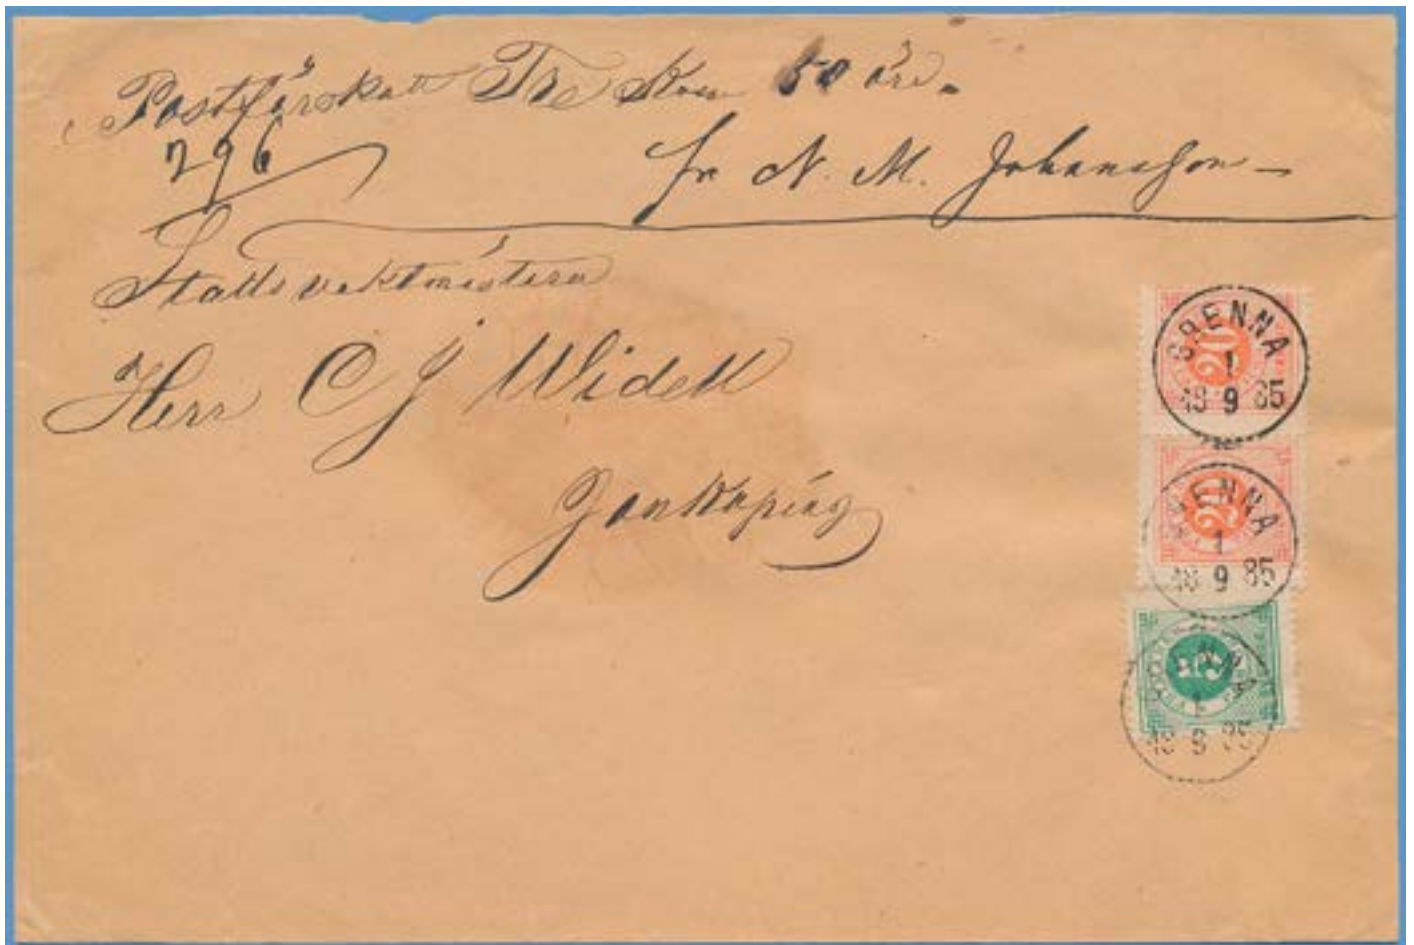 Postförskott Tre Kron 50 öre.
796
fr N. M. Johansson —
Stadsvaktmästaren
Herr C J Widell
Jonköping
GRENNA
1
18 9 85
20
GRENNA
1
18 9 85
20
1
18 9 85
5